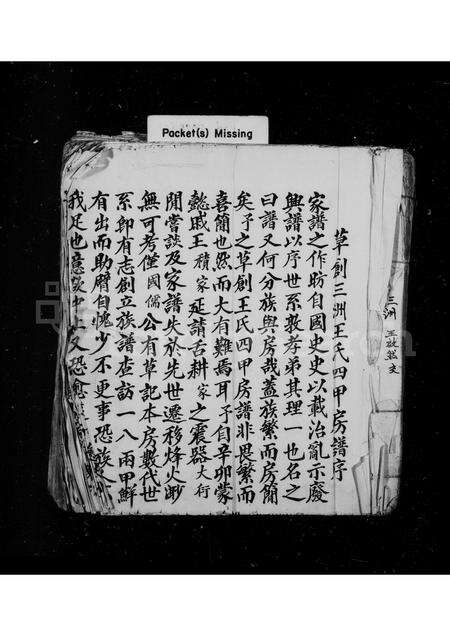 Packet(s) Missing
草創三洲王氏四甲房譜序
家譜之作昉自國史史以載治亂示廢
興譜以序世系敦孝弟其理一也名之
曰譜又何分族與房哉蓋族繁而房簡
矣予之草創王氏四甲房譜非畏繁而
喜簡也然而大有難焉耳予自辛卯蒙
懿戚王積家延請舌耕家之震器大行
閒嘗談及家譜失於先世遷移烽火渺
無可考僅國儒公有草記本房數代世
系卽有志創立族譜查訪一八兩甲鮮
有出而助厝自愧少不更事恐族人
我足也意
又恐
三洲